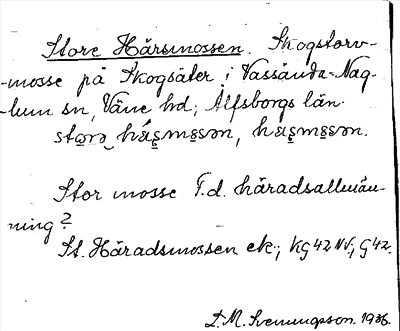 Store Härsmossen. Skogstorv-
-mosse på Skogsäter i Vassända-Nag-
-lum sn, Väne hd, Älfsborgs län.
Stor mosse F.d. häradsallmän-
ning?
St. Häradsmossen ek.; KG 42 NV.; G 42.
D. M. Svenungsson. 1936.